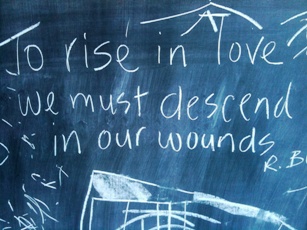 To rise in love
we must descend
in our wounds
R. B